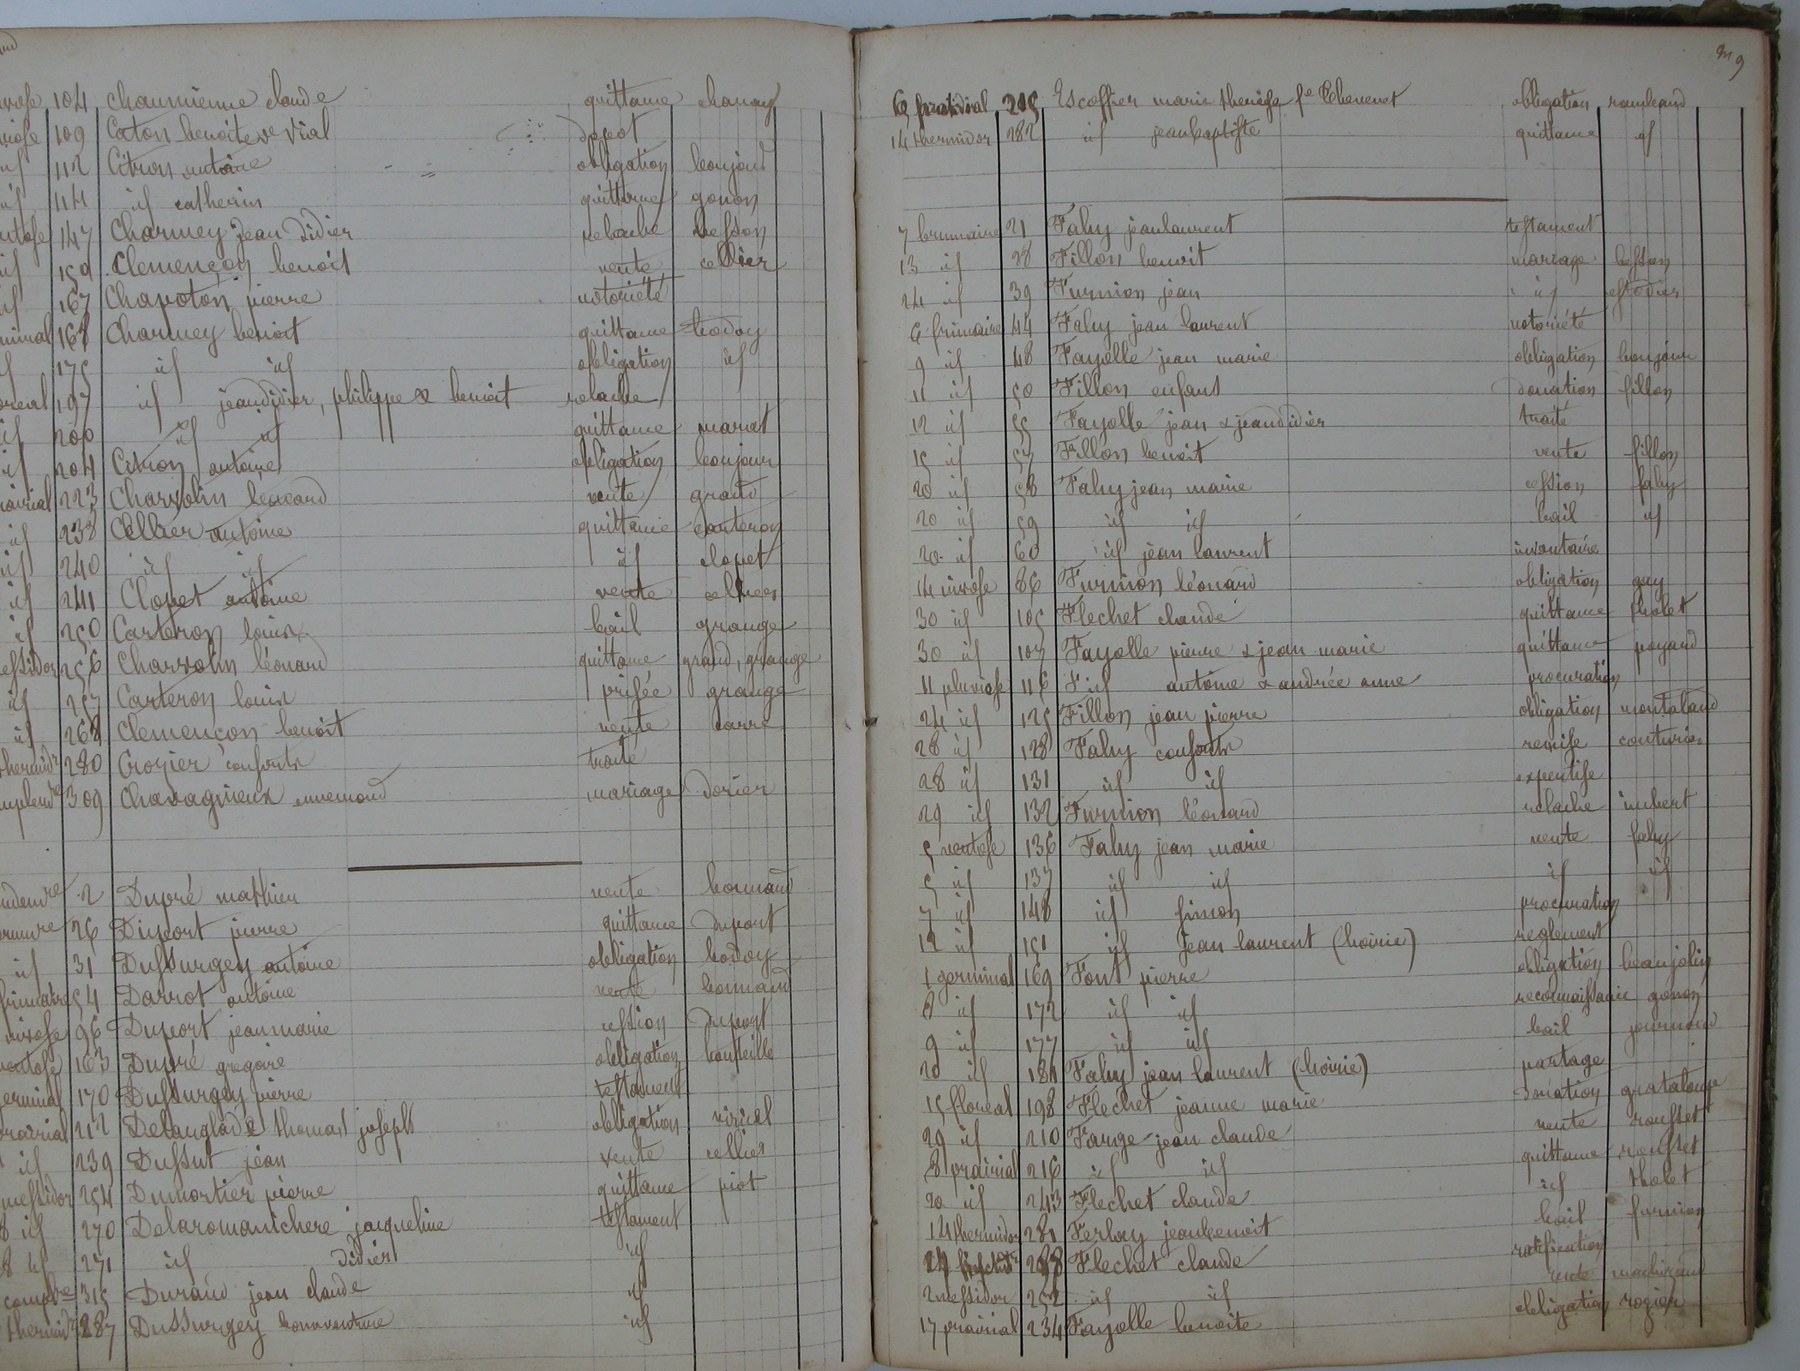 104 Chaumienne claude quittance
109 Caton benoite ve Vial depot
id 112 Citron antoine obligation bonjour
id 114 id catherin quittance gonon
147 Charmey Jean Didier relache besson
id 159 Clemençon benoit vente cellier
id 167 Chapoton pierre notoriété
168 Charmey benoit quittance bodoy
id 175 id id obligation id
197 id jeandidier, philippe & benoit relache
id 200 id id quittance
id 204 Citron antoine obligation bonjour
223 Charvolin leonard vente grand
id 238 Cellier antoine quittance carteron
id 240 id id id clopet
id 241 Clopet antoine vente cellier
id 250 Carteron louis bail grange
256 Charvolin léonard quittance grand, grange
id 257 Carteron louis prisée grange
id 268 Clemençon benoit vente carre
280 Crozier consorts traité
309 Chavagnieux ennemond mariage dorier
2 Dupré mathieu vente bonnand
26 Duport pierre quittance dupont
id 31 Dussurgey antoine obligation bodoy
54 Darrot antoine vente bonnand
96 Duport jeanmarie cession dupont
163 Dupré gregoire obligation bouteille
170 Dussurgey pierre testament
212 Delanglade thomas joseph obligation viricel
id 239 Dussut jean vente cellier
messidor 254 Dumortier pierre quittance piot
8 id 270 Delaromanichere jacqueline testament
8 id 271 id didier id
315 Durand jean claude id
287 Dussurgey bonaventure id
9
285 Escoffier marie therese fe obligation rambaud
14 thermidor 282 id jeanbaptiste quittance id
7 brumaire 21 Fahy jeanlaurent testament
13 id 28 Fillon benoit mariage besson
24 id 39 Furnion jean id
6 frimaire 44 Fahy jean laurent notoriété
9 id 48 Fayolle jean marie obligation bonjour
11 id 50 Fillon enfans donation fillon
12 id 55 Fayolle jean & jeandidier traité
15 id 57 Fillon benoit vente fillon
20 id 58 Fahy jean marie cession fahy
20 id 59 id id bail id
20 id 60 id jean laurent inventaire
14 nivose 86 Furnion léonard obligation guy
30 id 105 Flechet claude quittance tholet
30 id 107 Fayolle pierre & jean marie quittance payard
11 pluviose 116 id antoine & andrée anne procuration
24 id 125 Fillon jean pierre obligation montaland
28 id 128 Fahy consorts remise couturier
28 id 131 id id expertise
29 id 132 Furnion léonard relache imbert
5 ventose 136 Fahy jean marie vente fahy
5 id 137 id id id id
7 id 148 id simon procuration
12 id 151 id jean laurent (hoirie) reglement
1 germinal 169 Font pierre obligation beaujolin
8 id 172 id id reconnaissance gonon
9 id 177 id id bail journoud
20 id 186 Fahy jean laurent (hoirie) partage
15 floreal 198 Flechet jeanne marie donation grataloup
29 id 210 Farge jean claude vente rousset
8 prairial 216 id id quittance rousset
20 id 243 Flechet claude id tholet
14 thermidor 281 Ferlay jeanbenoit bail furnion
288 Flechet claude ratification
2 messidor 252 id id vente
17 prairial 234 Fayolle benoite obligation rozier